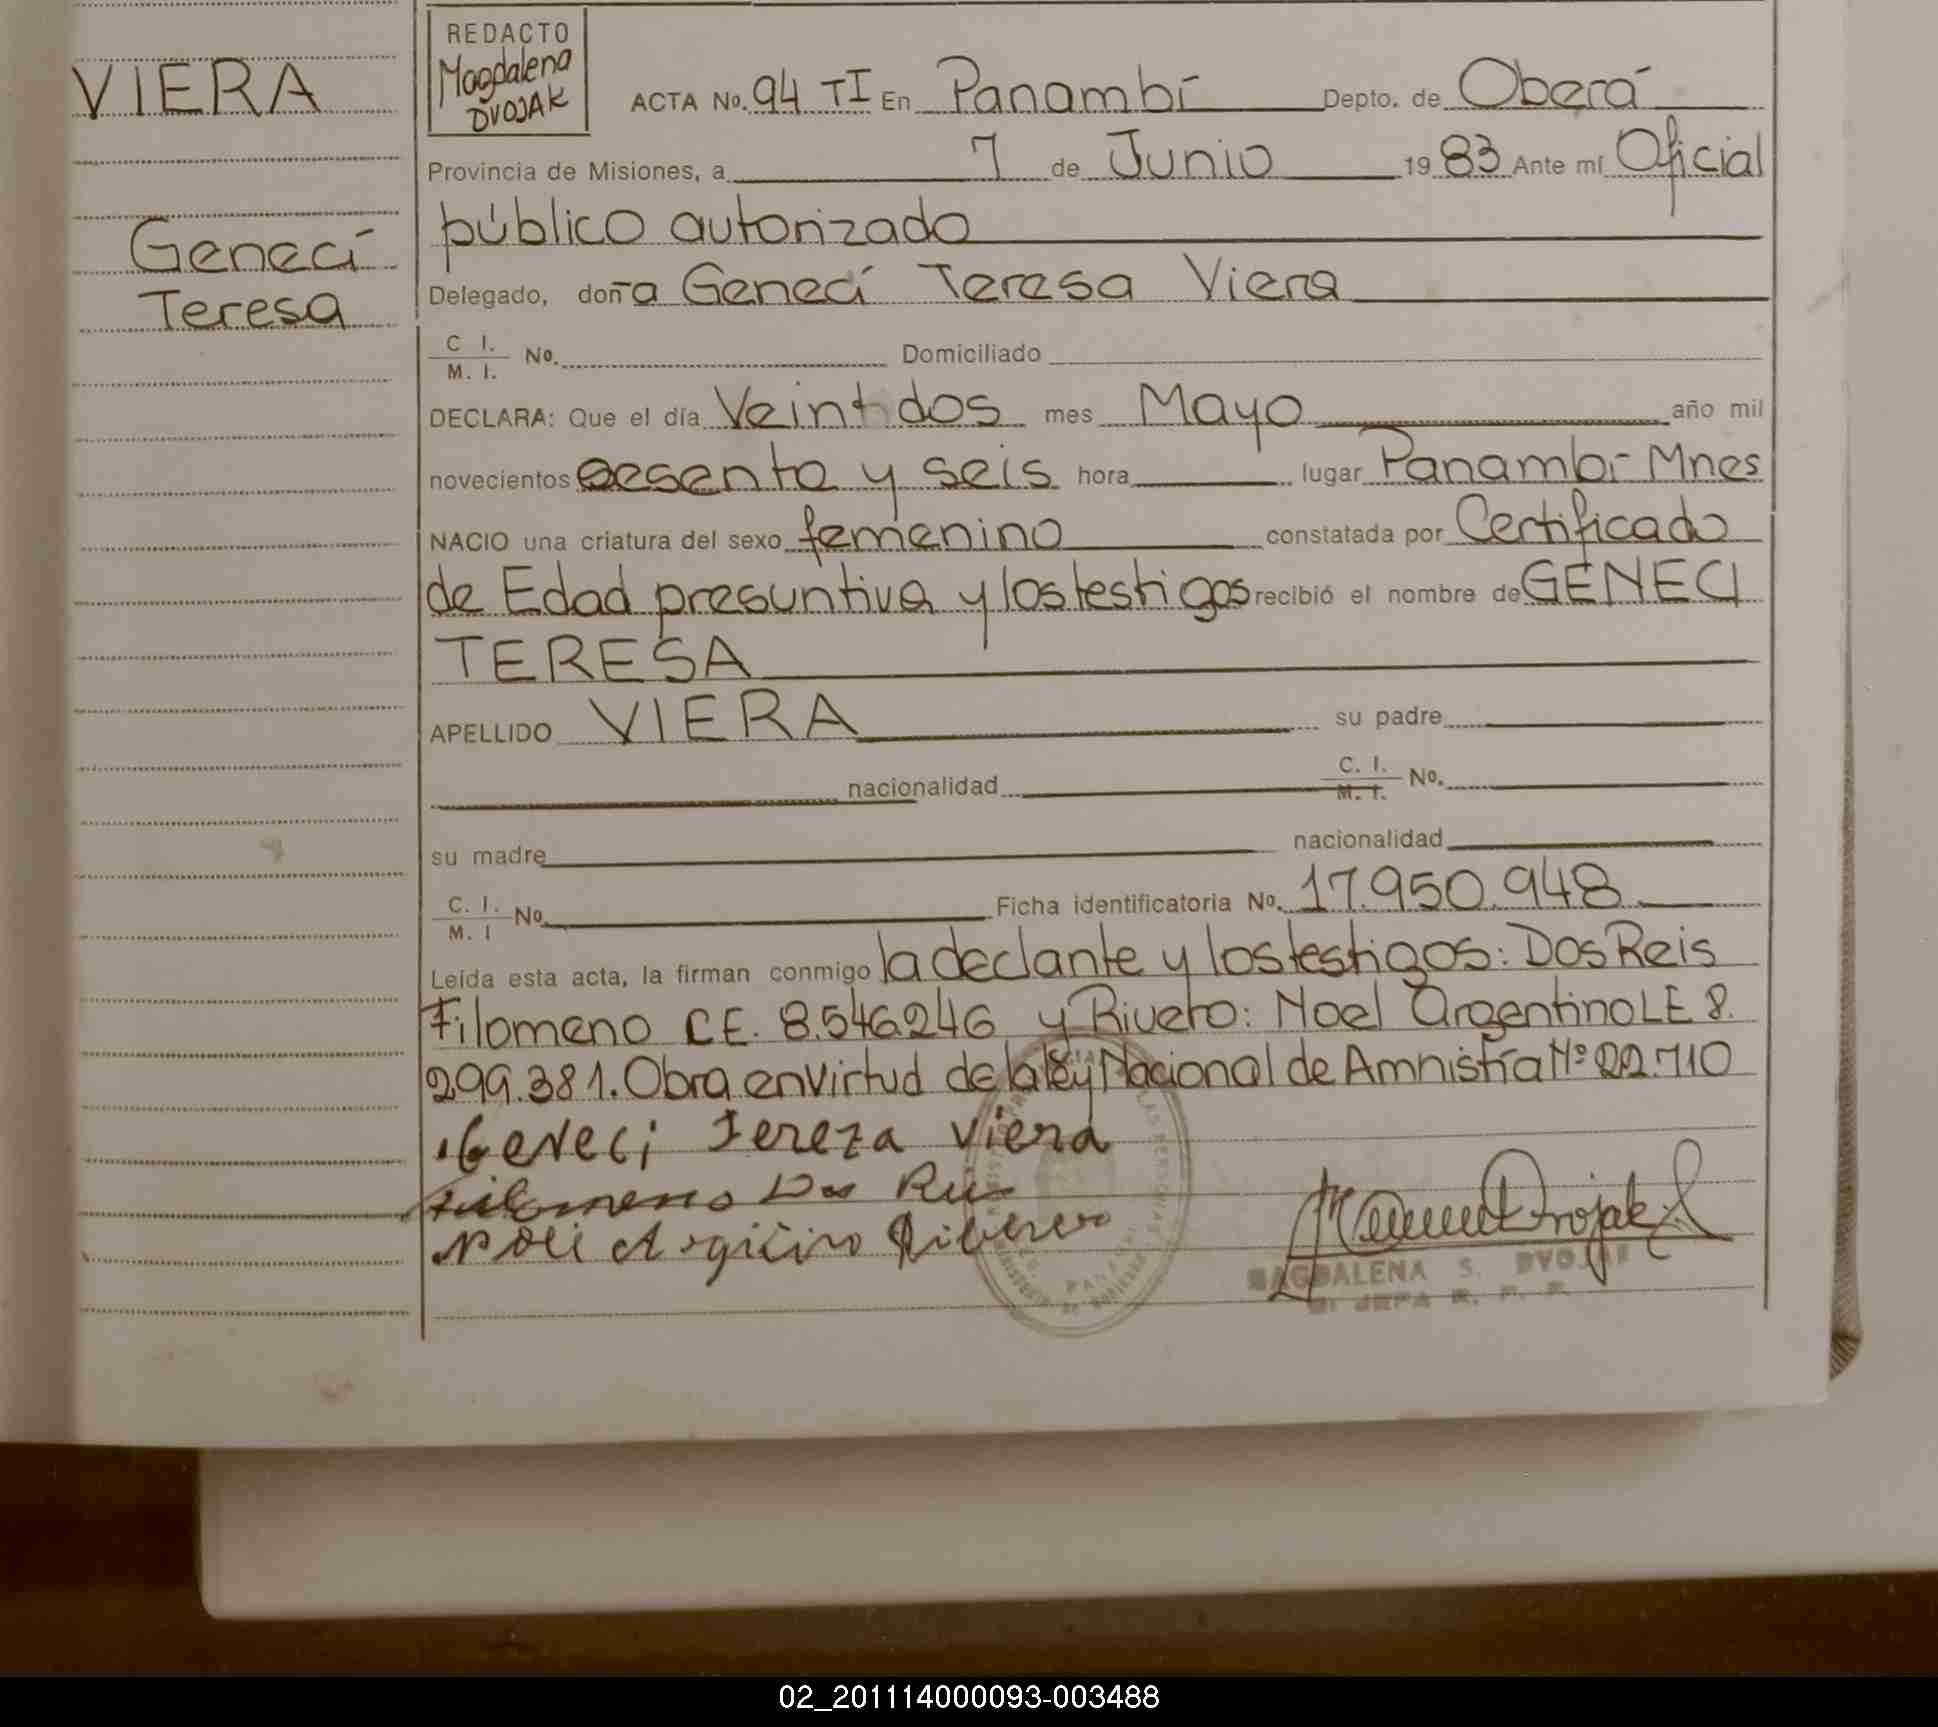 VIERA
Genecí
Teresa
REDACTO
Magdalena
DVOJAK
ACTA No. 94 TI En Panambí Depto. de Oberá
Provincia de Misiones, a 7 de Junio 1983 Ante mí Oficial
público autorizado
Delegado, doña Genecí Teresa Viera
C I. M. I. No. Domiciliado
DECLARA: Que el día Veintidos mes Mayo año mil
novecientos sesenta y seis hora lugar Panambí-Mnes
NACIO una criatura del sexo femenino constatada por Certificado
de Edad presuntiva y los testigos recibió el nombre de GENECI
TERESA
APELLIDO VIERA su padre
nacionalidad C. I. M. I. No.
su madre nacionalidad
C. I. M. I No. Ficha identificatoria No. 17.950.948
Leída esta acta, la firman conmigo la declante y los testigos: Dos Reis
Filomeno C.E. 8.546.246 y Rivero: Noel Argentino LE 8.
299.381. Obra en virtud de la ley Nacional de Amnistía Nº 22.710
Geneci Tereza Viera
Filomeno Dos Reis
MAGDALENA S. DVOJAK
02_201114000093-003488